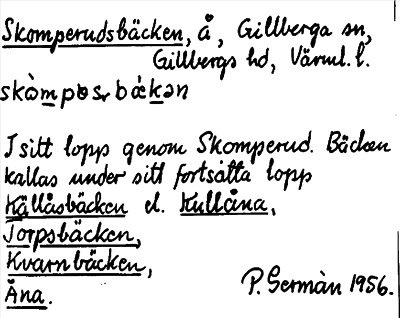 Skomperudsbäcken, å, Gillberga sn,
Gillbergs hd, Värml. l.
I sitt lopp genom Skomperud. Bäcken
kallas under sitt fortsatta lopp
Källåsbäcken el. Kullåna,
Torpsbäcken,
Kvarnbäcken,
Åna.
P. Germàn 1956.